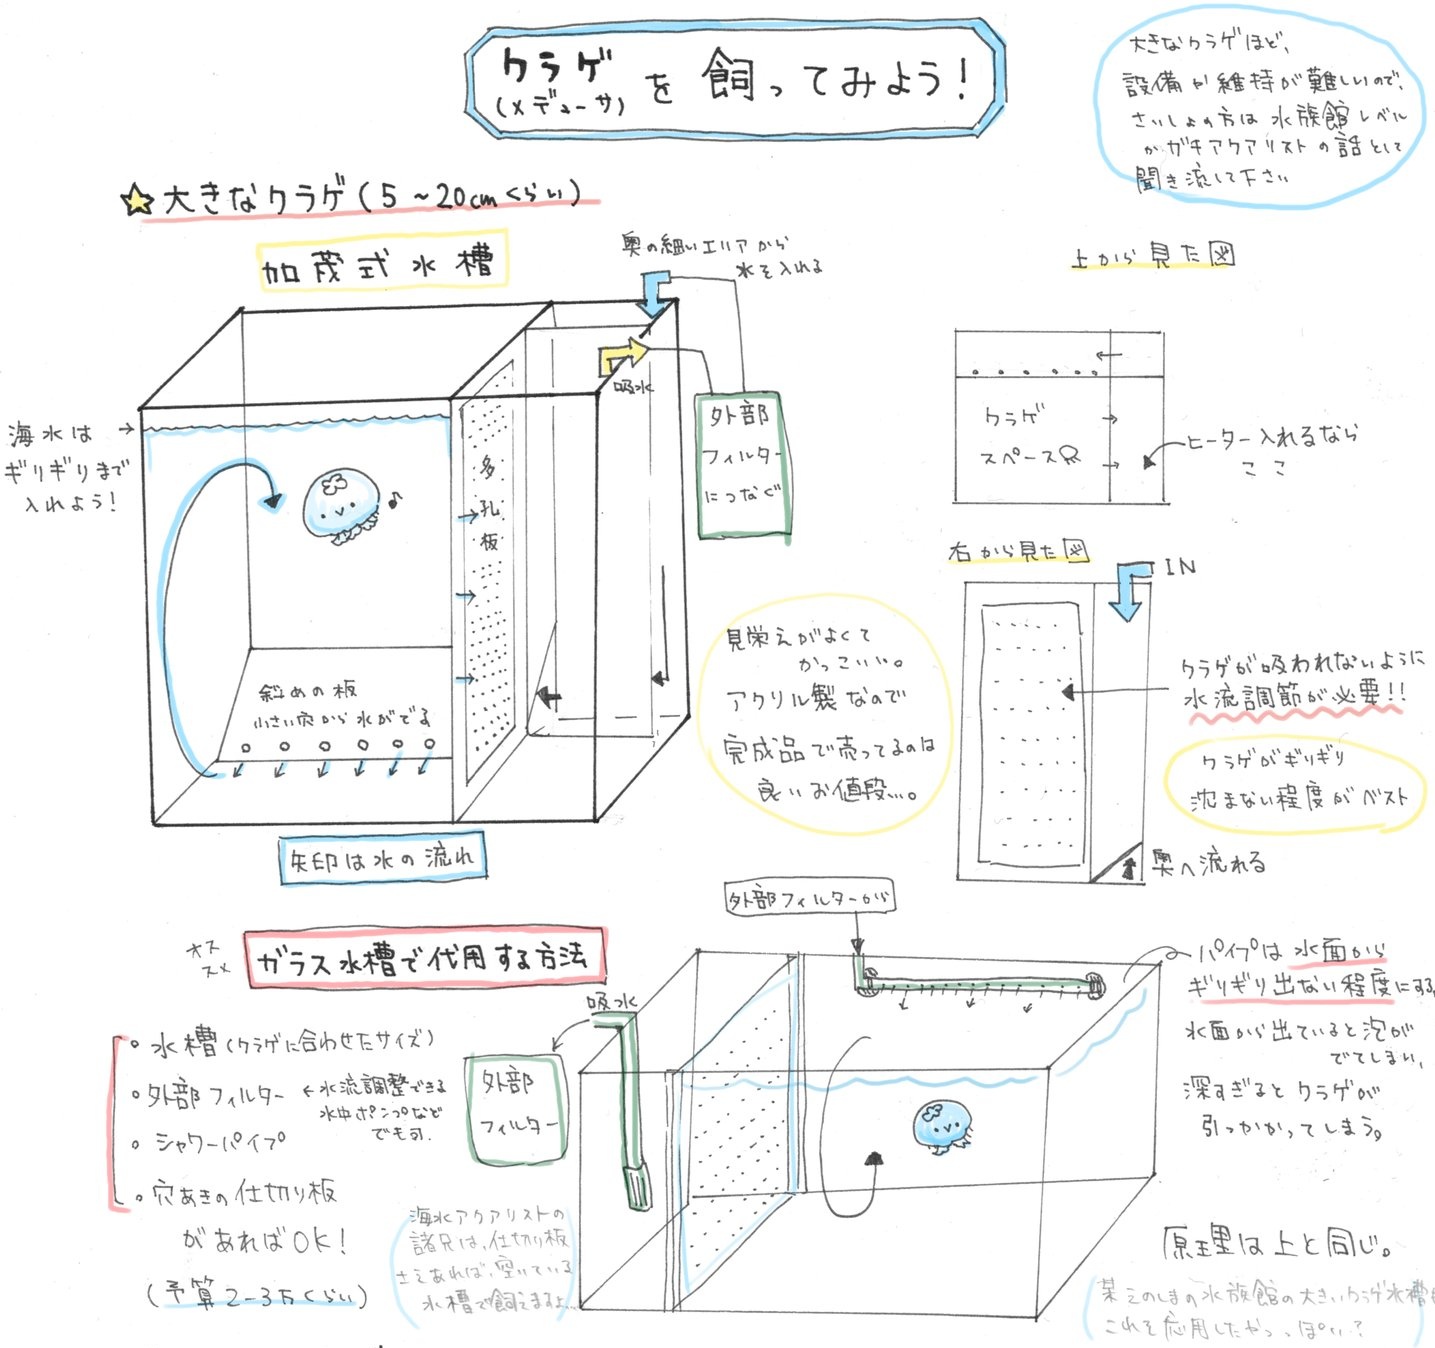 クラゲ
(メデューサ)
を飼ってみよう!
大きなクラゲほど、
設備や維持が難しいので、
さいしょの方は水族館レベル
かガキアクアリストの話として
聞き流して下さい
大きなクラゲ(5~20cmくらい)
加茂式水槽
奥の細いエリアから
水を入れる
吸水
外部
フィルター
につなぐ
海水は
ギリギリまで
入れよう!
多
孔
板
斜めの板
小さい穴から水がでる
矢印は水の流れ
上から見た図
クラゲ
スペース
ヒーター入れるなら
ここ
右から見た図
IN
クラゲが吸われないように
水流調節が必要!!
クラゲがギリギリ
沈まない程度がベスト
奥へ流れる
見栄えがよくて
かっこいい。
アクリル製なので
完成品で売ってるのは
良いお値段…。
オス
スメ
ガラス水槽で代用する方法
。水槽(クラゲに合わせたサイズ)
。外部フィルター ←水流調整できる
水中ポンプなど
でも可.
。シャワーパイプ
。穴あきの仕切り板
があればOK!
(予算2-3万くらい)
吸水
外部
フィルター
海水アクアリストの
諸兄は、仕切り板
さえあれば、空いている
水槽で飼えますよ…
外部フィルターから
パイプは水面から
ギリギリ出ない程度にする。
水面から出ていると泡が
でてしまい、
深すぎるとクラゲが
引っかかってしまう。
原理は上と同じ。
某えのしまの水族館の大きいクラゲ水槽も
これを応用したやつっぽい?